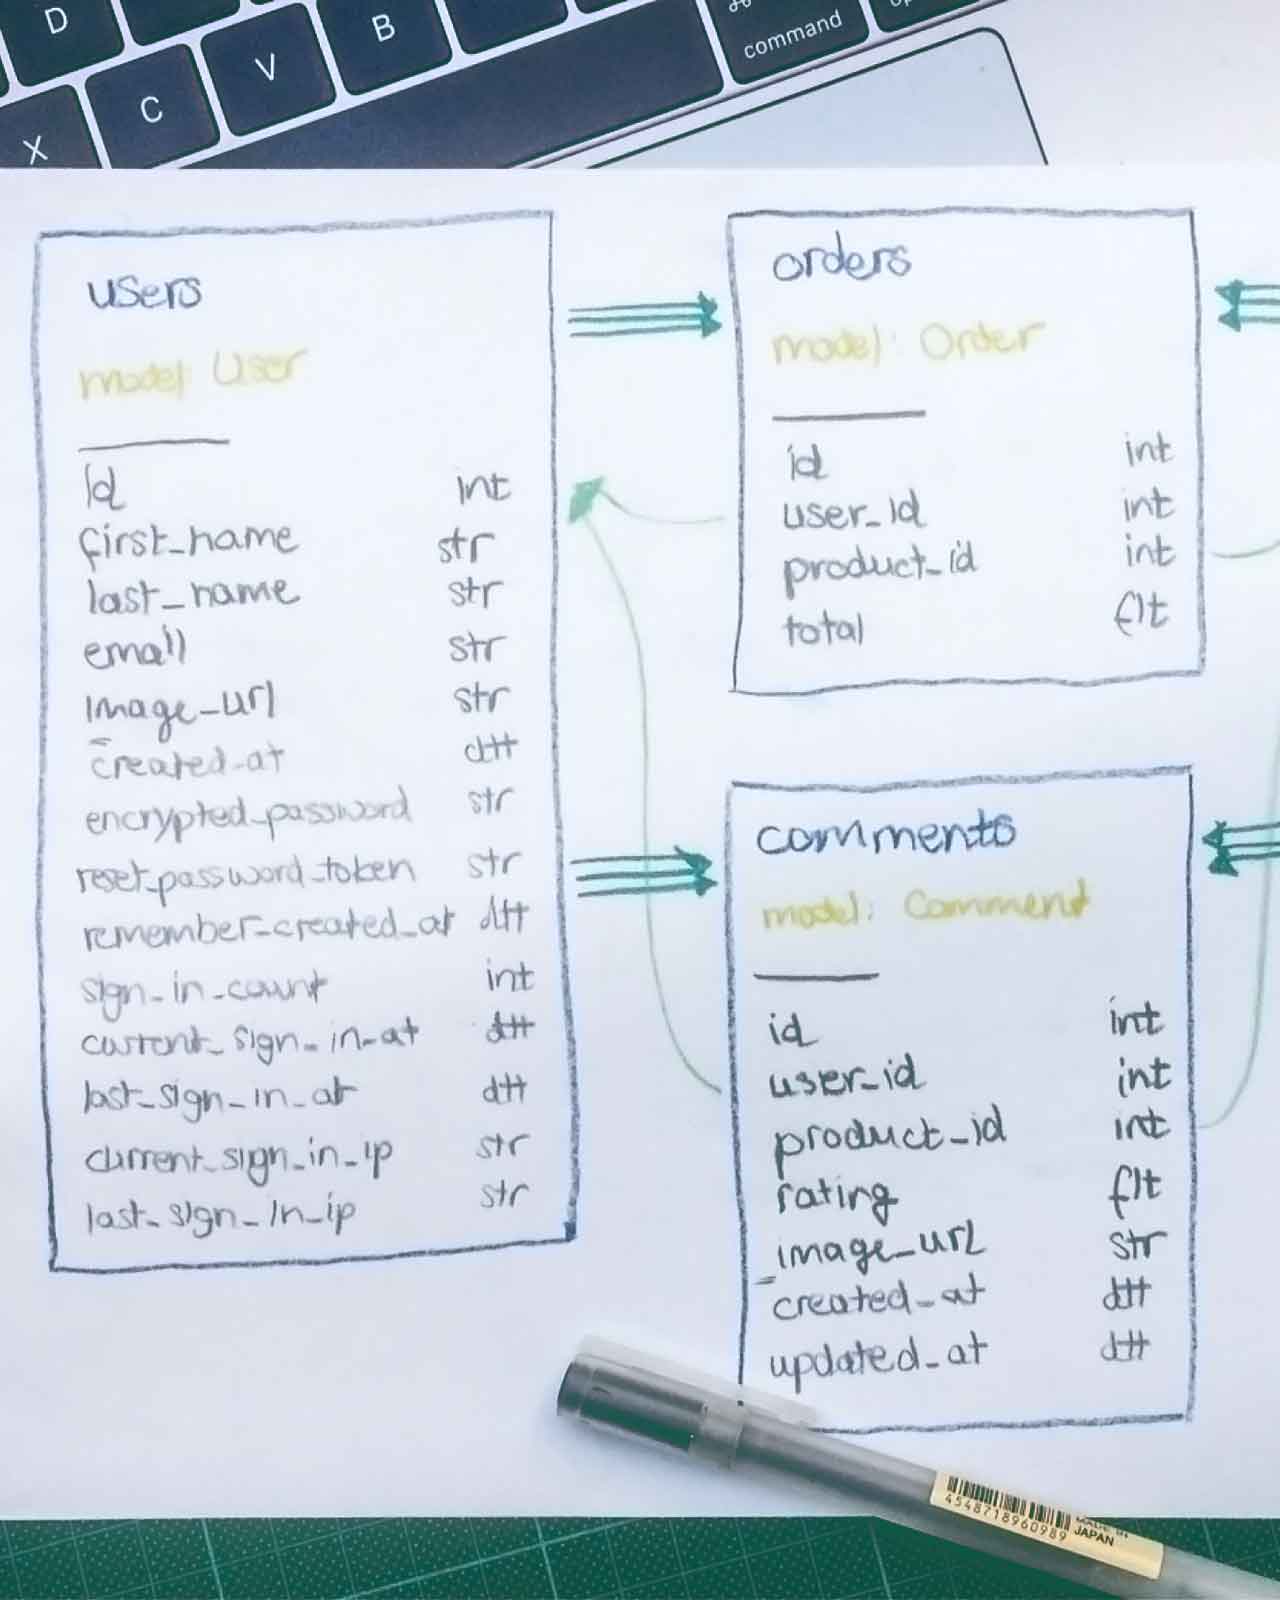 D
B
command
C
V
X
users
model: User
id int
first_name str
last_name str
email str
image_url str
created_at dtt
encrypted_password str
reset_password_token str
remember_created_at dtt
sign_in_count int
current_sign_in_at dtt
last_sign_in_at dtt
current_sign_in_ip str
last_sign_in_ip str
orders
model: Order
id int
user_id int
product_id int
total flt
comments
model: Comment
id int
user_id int
product_id int
rating flt
image_url str
created_at dtt
updated_at dtt
4548718960989
MADE IN
JAPAN